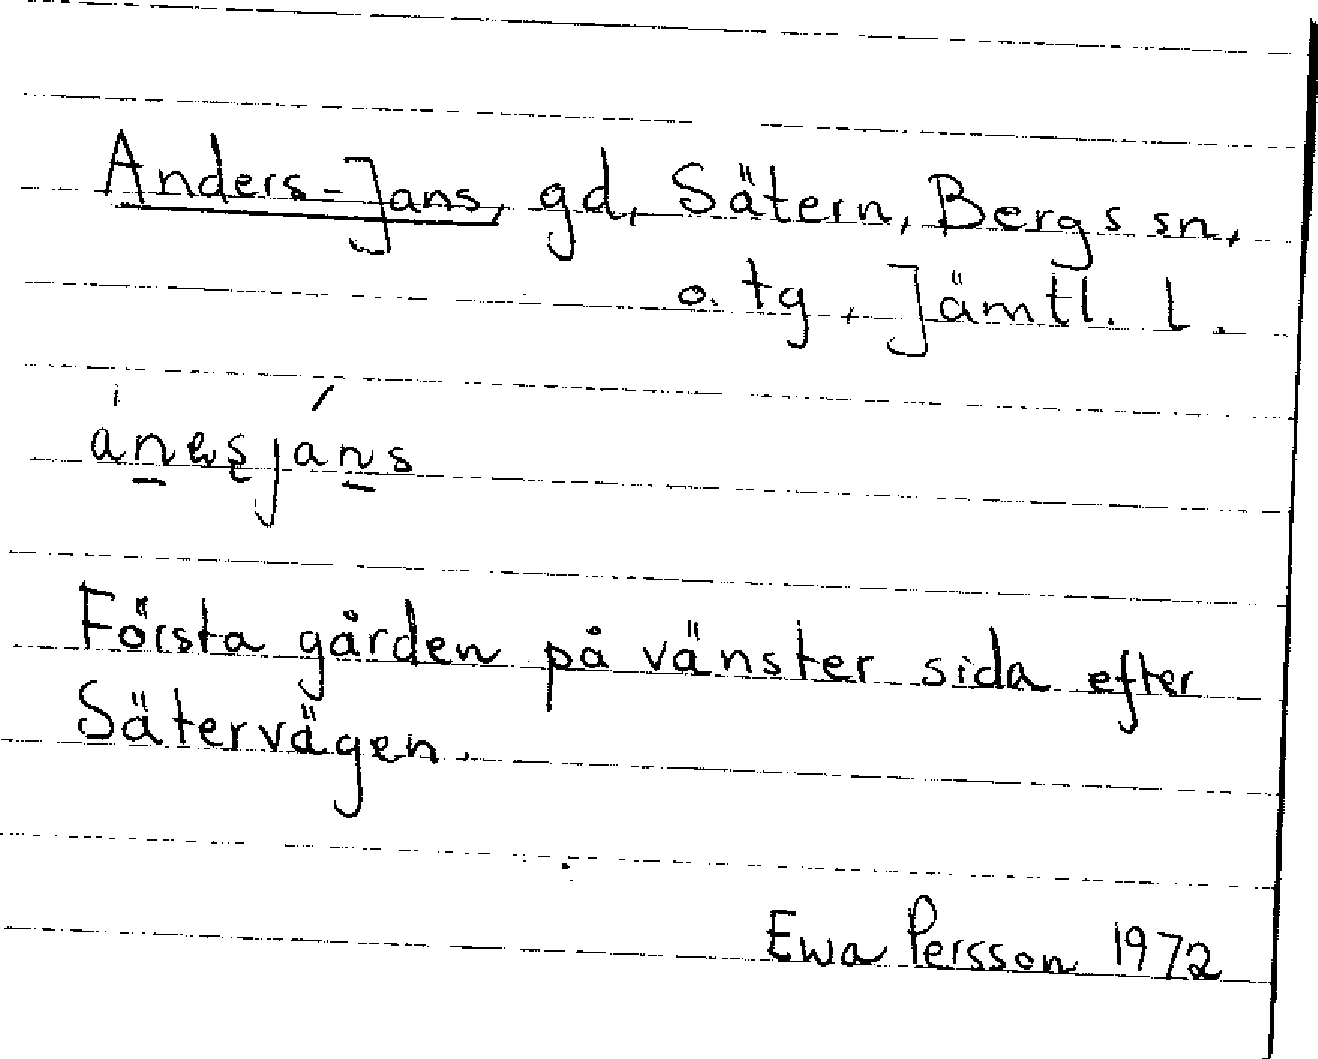 Anders-Jans, gd, Sätern, Bergs sn,
o. tg, Jämtl. l.
Första gården på vänster sida efter
Sätervägen.
Ewa Persson 1972